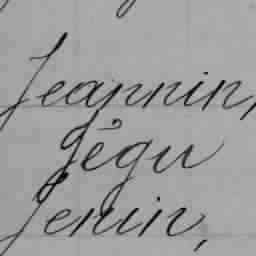 Jeannin,
Ségu
Jenin,